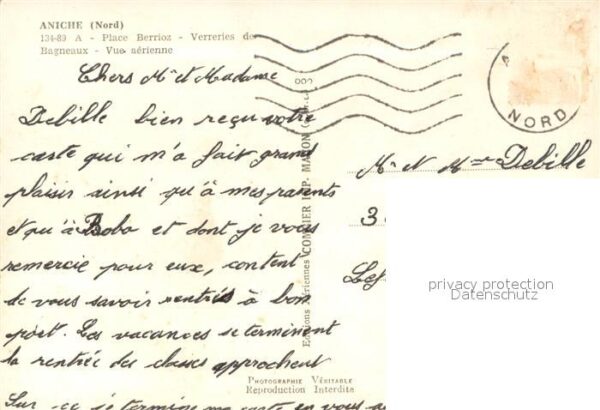 ANICHE (Nord)
134-89 A - Place Berrioz - Verreries de
Bagneaux - Vue aérienne
Chers Mr et Madame
Debille bien reçu votre
carte qui m'a fait grand
plaisir ainsi qu'à mes parents
et qu'à Bobo et dont je vous
remercie pour eux, content
de vous savoir rentrés à bon
port. Les vacances se terminent
la rentrée des classes approchent
Sur ce je termine ma carte en vous
PHOTOGRAPHIE VÉRITABLE
Reproduction Interdite
Editions Aériennes COMBIER IMP. MACON
NORD
Mr et Mme Debille
3
privacy protection
Datenschutz